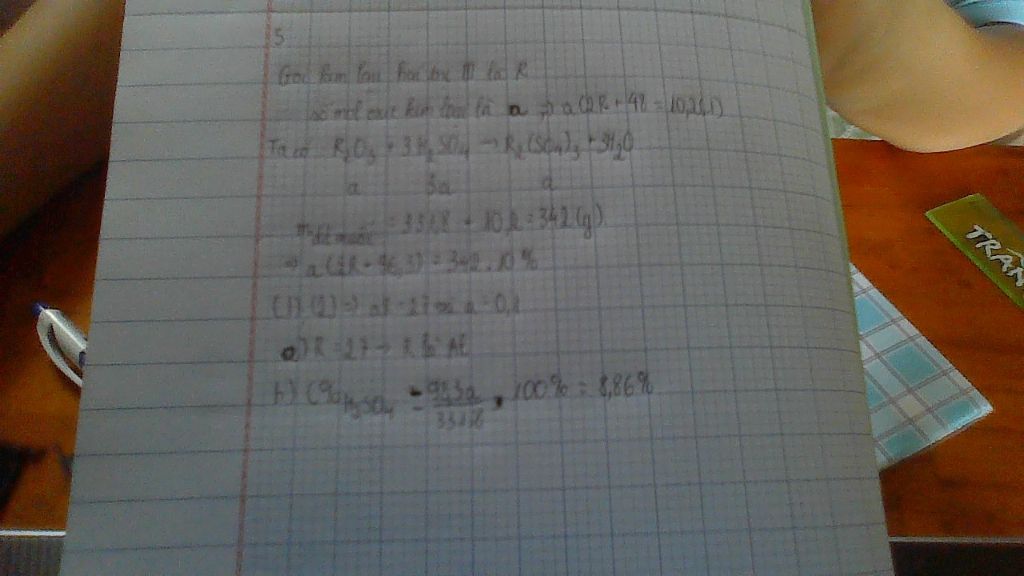 5
Gọi kim loại hoá trị III là R
Số mol oxit kim loại là a => a(2R + 48 = 10,2(1)
Ta có: R₂O₃ + 3H₂SO₄ → R₂(SO₄)₃ + 3H₂O
a 3a a
m dd muối = 331,8 + 10,2 = 342 (g)
=> a(2R + 96,3) = 342.10%
(1)(2) => aR = 27 => a = 0,1
a) R = 27 → R là Al
b) C%H₂SO₄ = 98.3a / 331,8 . 100% = 8,86%
TRẦN